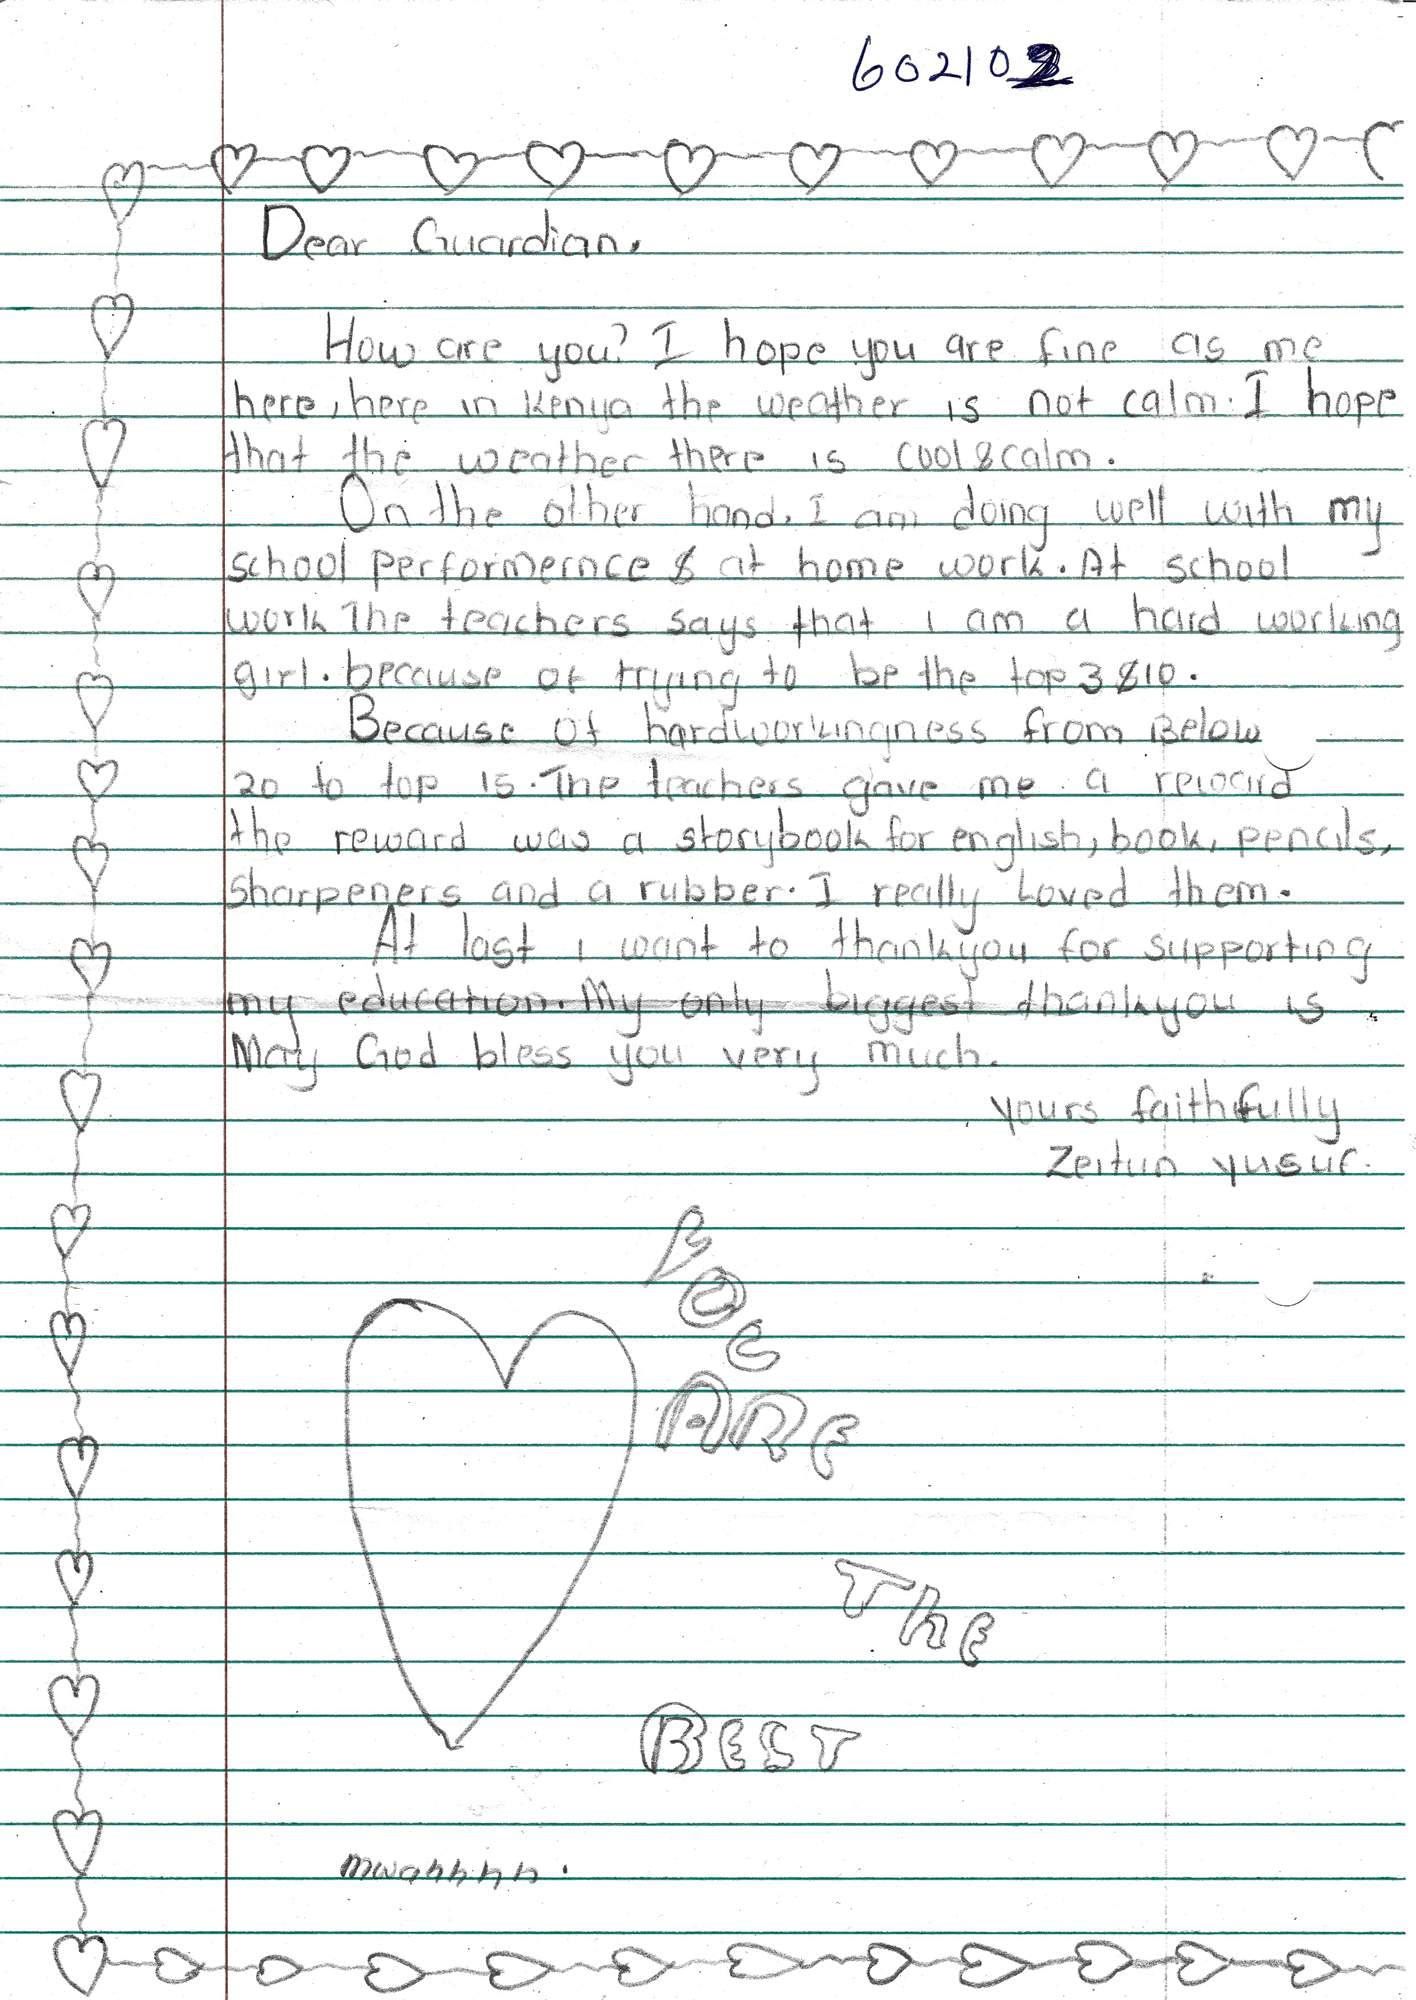 602102
Dear Guardian.
How are you? I hope you are fine as me
here, here in Kenya the weather is not calm. I hope
that the weather there is cool & calm.
On the other hand. I am doing well with my
school performernce & at home work. At school
work The teachers says that i am a hard working
girl. because of trying to be the top 3 & 10.
Because of hardworkingness from Below
20 to top 15. The teachers gave me a reward
the reward was a storybook for english, book, pencils,
Sharpeners and a rubber. I really Loved them.
At last i want to thankyou for supporting
my education. My only biggest thankyou is
May God bless you very much.
yours faithfully
Zeitun yusuf.
YOU
ARE
The
BEST
mwahhhh.